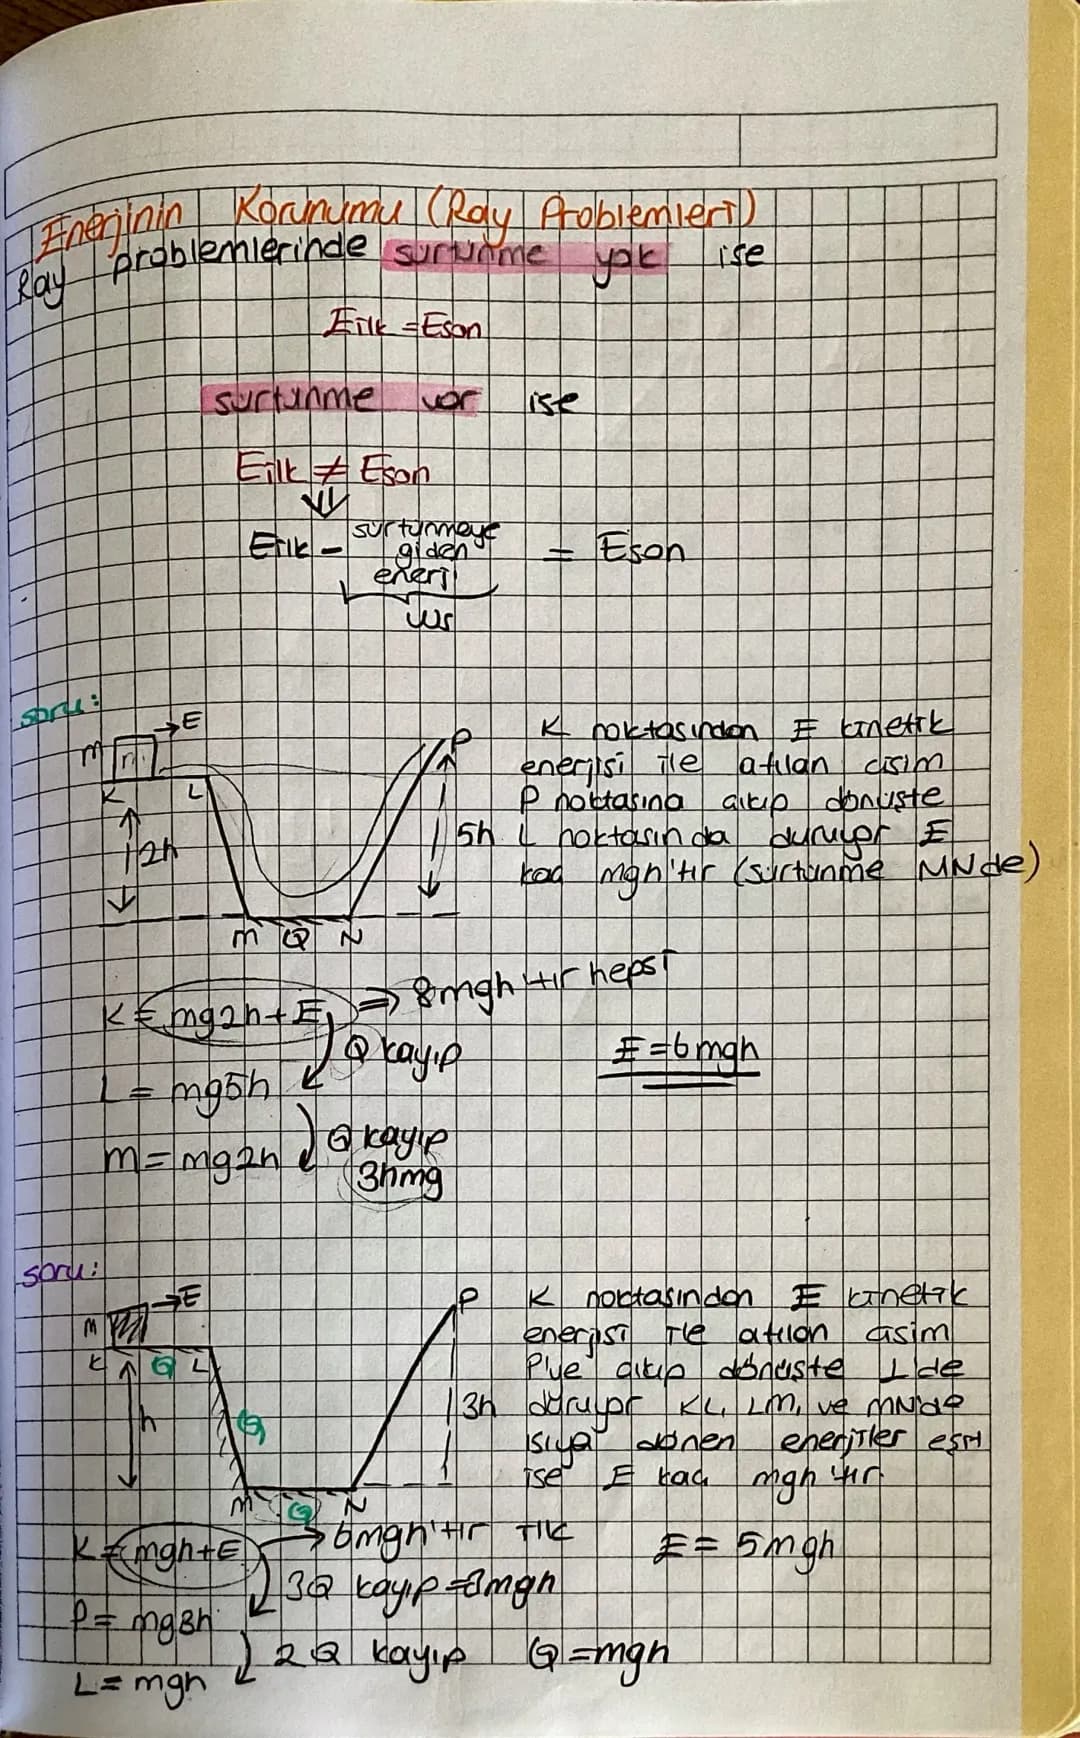 Enerjinin Korunumu (Ray Problemleri)
Ray problemlerinde sürtünme yok ise
Eilk = Eson
sürtünme var ise
Eilk ≠ Eson
⇓
Eilk - sürtünmeye giden enerji = Eson
Ws
soru:
m → E
K L
2h
M Q N
P
5h
K noktasından E kinetik
enerjisi ile atılan cisim
P noktasına çıkıp dönüşte
L noktasında duruyor E
kaç mgh'tır (sürtünme MN de)
K = mg2h + E ⇒ 8mgh'tır hepsi
Q kayıp
L = mg5h
E = 6mgh
m = mg2h
Q kayıp
3hmg
soru:
m → E
K Q L
h
Q
M Q N
P
3h
K noktasından E kinetik
enerjisi ile atılan cisim
P'ye çıkıp dönüşte L'de
duruyor KL, LM, ve MN'de
ısıya dönen enerjiler eşit
ise E kaç mgh'tır
K = mgh + E → 6mgh'tır ilk
E = 5mgh
3Q kayıp = 3mgh
P = mg3h
2Q kayıp Q = mgh
L = mgh